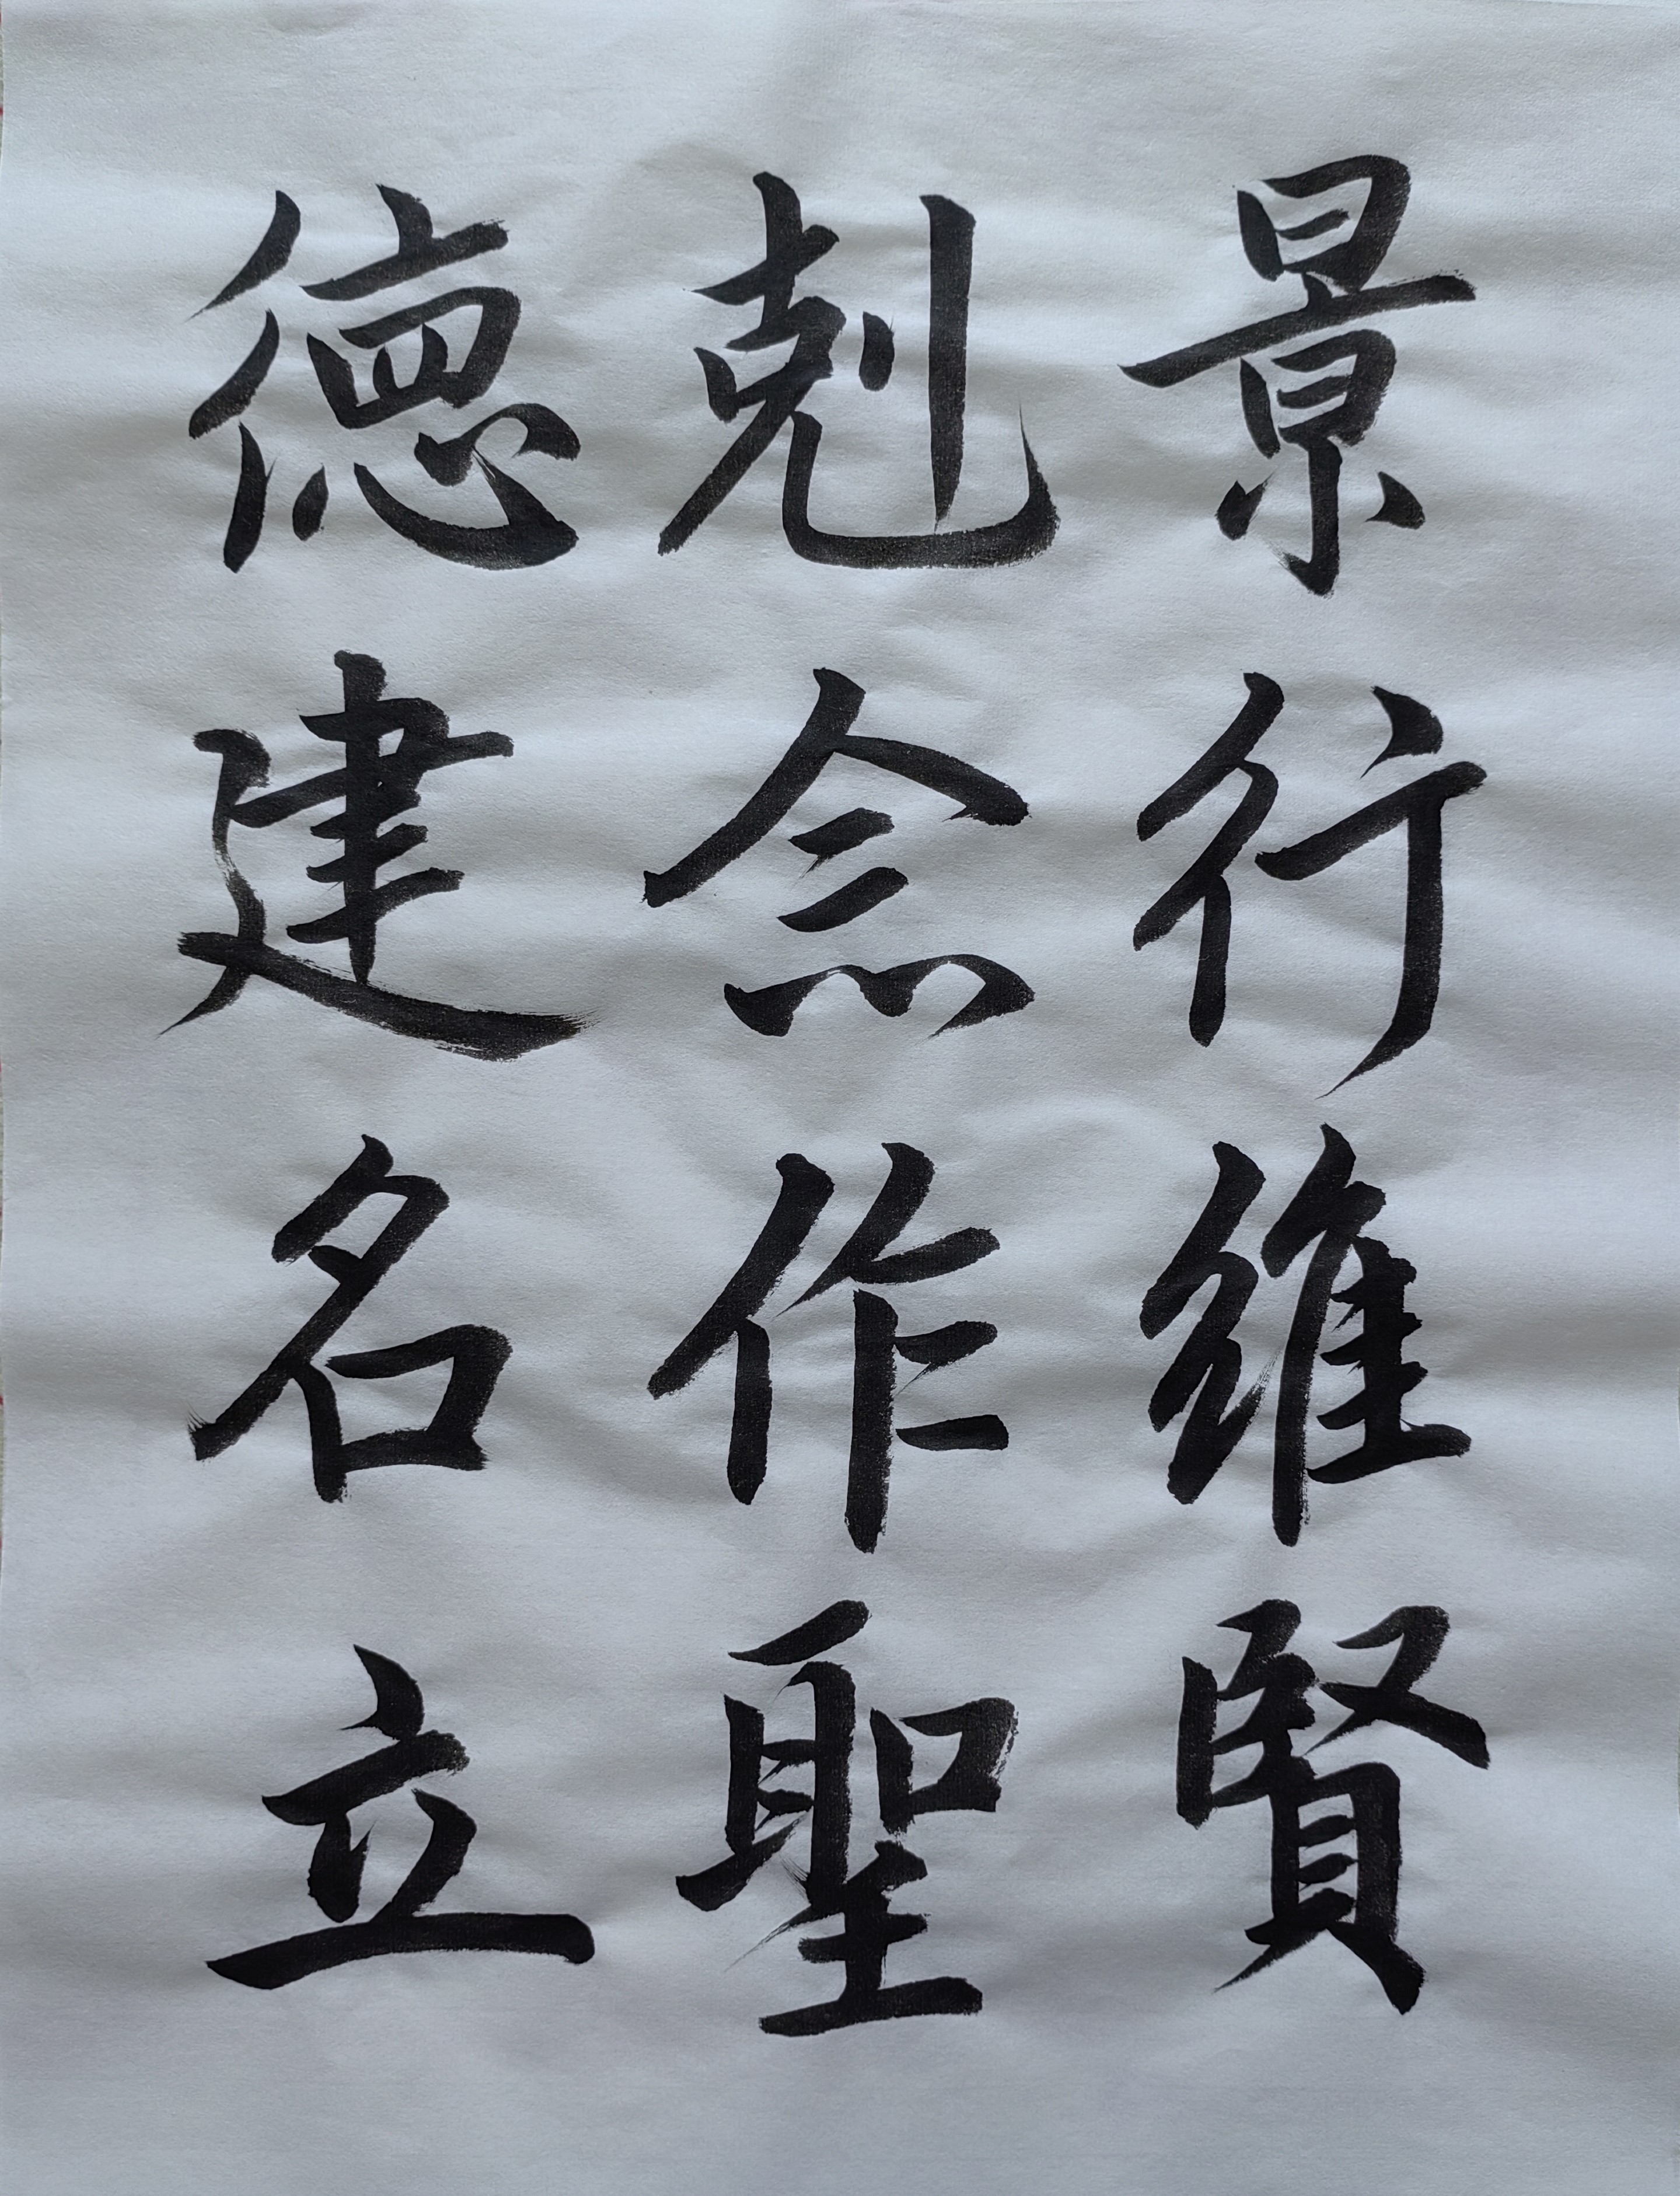 景行維賢
剋念作聖
德建名立